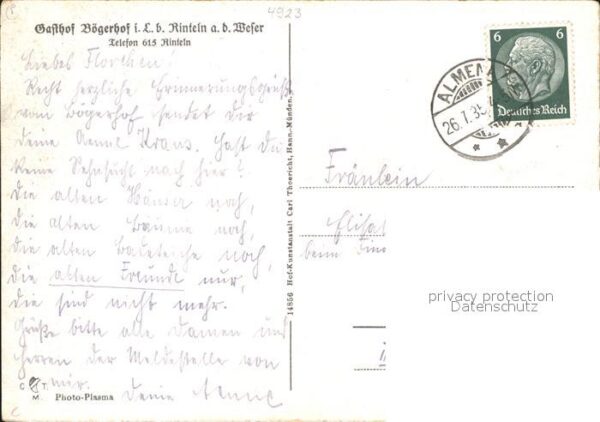 4923
Gasthof Bögerhof i. L. b. Rinteln a. d. Weser
Telefon 615 Rinteln
Liebes Florchen!
Recht herzliche Erinnerungsgrüße
vom Bögerhof sendet dir
deine Kraus. Hast du
keine Sehnsucht nach hier?
Die alten Häuser noch,
die alten Bäume noch,
die alten noch,
die alten Freunde nur,
die sind nicht mehr.
Grüße bitte alle Damen und
Herren der Meldestelle von
mir. Deine
C. T.
M. Photo-Plasma
14856 Hof-Kunstanstalt Carl Thoericht, Hann.-Münden.
6 6
Deutsches Reich
ALMENA
26.1.35
Fräulein
Elisa
beim
privacy protection
Datenschutz